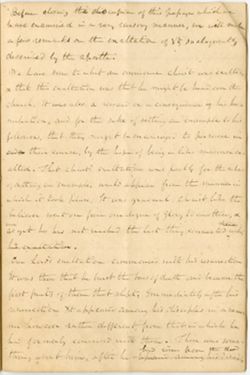 Before closing the discussion of this passage which we
have examined in a very cursory manner, we will make
a few remarks on the exaltation of Xt so eloquently
described by the apostle.
We have seen to what an eminence Christ was exalted
& that this exaltation was that he might be head over the
church. It was also a reward or a consequence of his hu-
miliation, and for the sake of setting an example to his
followers, that they might be encouraged to persevere in
their course, by the hope of being in like manner ex-
alted. That Christ's exaltation was partly for the sake
of setting an example, would appear from the manner in
which it took place. It was gradual. Christ like the
believer went on from one degree of glory to another, &
as yet he has not reached the last they
his exaltation.
Our Lord's exaltation commences with his resurrection
It was then that he burst the bands of death and became the
first fruits of them that slept. Immediately after his
resurrection Xt appeared among his disciples in a man-
ner somewhat different from that in which he
had formerly conversed with them. There was some-
thing about him, after he had risen from the dead